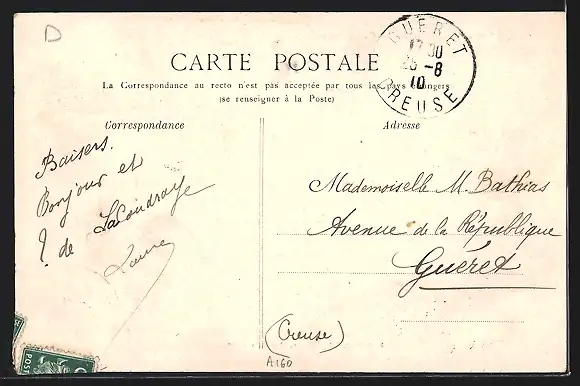 D
CARTE POSTALE
La Correspondance au recto n'est pas acceptée par tous les pays étrangers
(se renseigner à la Poste)
GUERET
17 30
25 -8
10
CREUSE
Correspondance
Adresse
Baisers.
Bonjour et
? de LaCoudraye
Mademoiselle M. Bathias
Avenue de la République
Guéret
(Creuse)
A160
POS